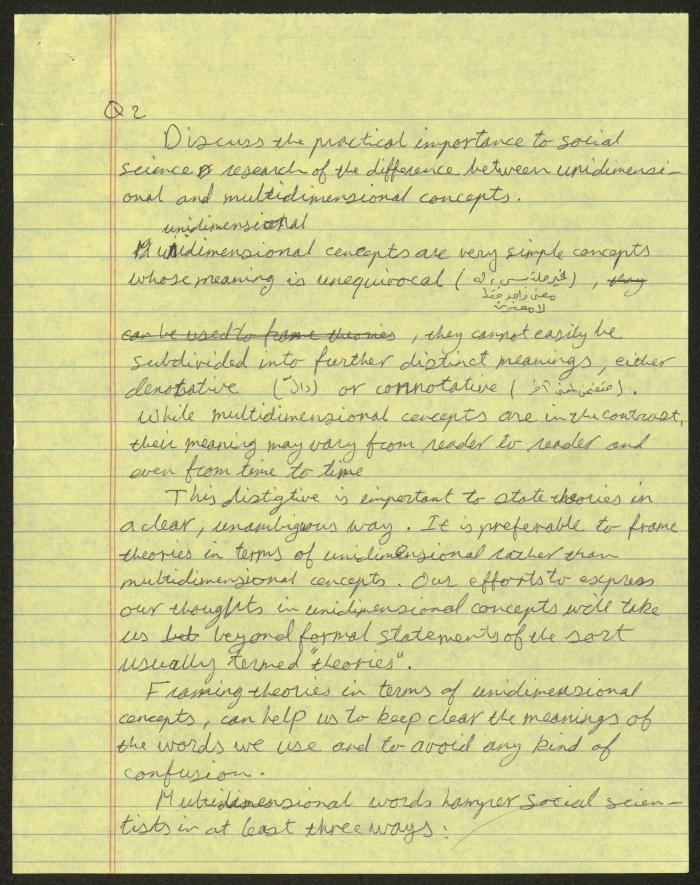 Q 2
Discuss the practical importance to social
science research of the difference between unidimensi-
onal and multidimensional concepts.
unidimensional
Unidimensional concepts are very simple concepts
whose meaning is unequivocal ( غير ملتبس , له ) , they
معنى واحد فقط
لا معنيين
can be used to frame theories , they cannot easily be
subdivided into further distinct meanings, either
denotative ( دالّ ) or connotative ( ضمني ) .
While multidimensional concepts are in the contrast,
their meaning may vary from reader to reader and
even from time to time
This distigtive is important to state theories in
a clear, unambiguous way. It is preferable to frame
theories in terms of unidimensional rather than
multidimensional concepts. Our efforts to express
our thoughts in unidimensional concepts will take
us but beyond formal statements of the sort
usually termed "theories".
Framing theories in terms of unidimensional
concepts, can help us to keep clear the meanings of
the words we use and to avoid any kind of
confusion.
Multidimensional words hamper social scien-
tists in at least three ways: